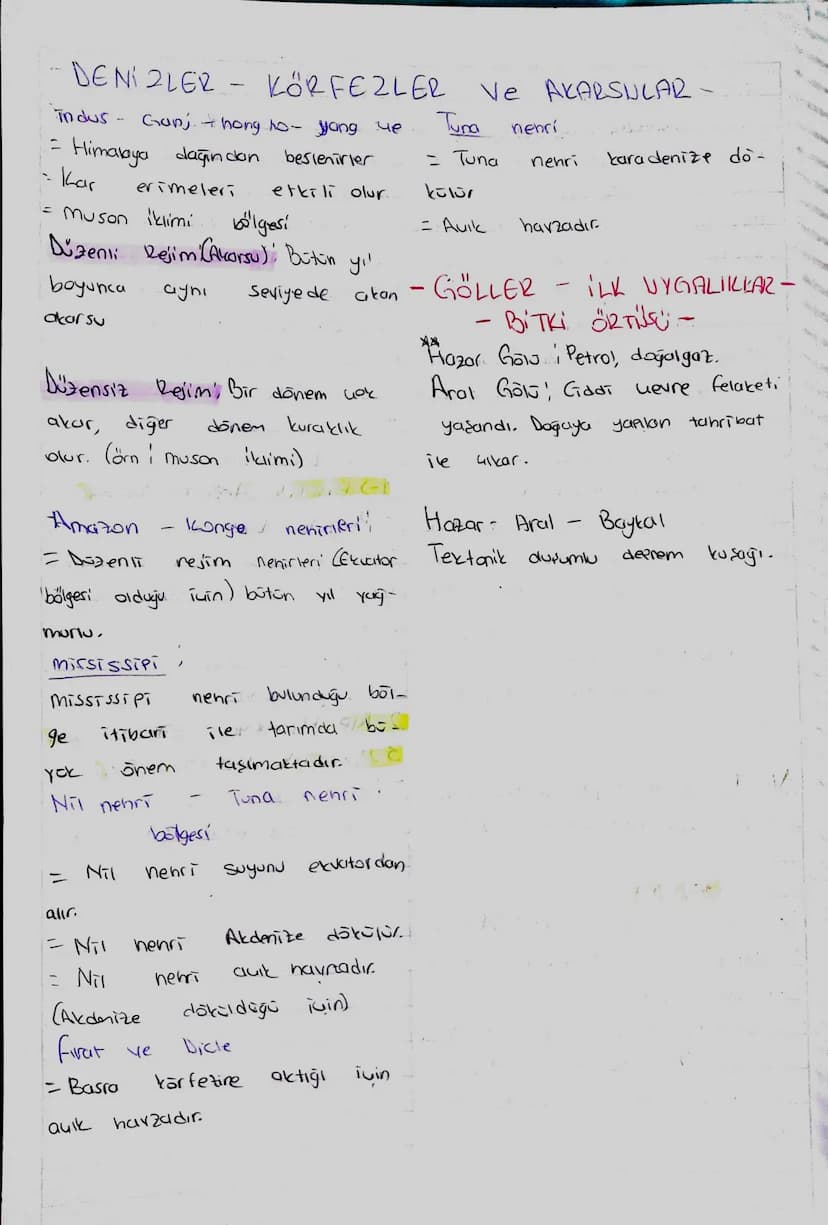 - DENİZLER - KÖRFEZLER ve AKARSULAR -
İndus - Ganj - hong ho - yang ve
= Himalaya dağından beslenirler
= Kar erimeleri etkili olur
= Muson iklimi bölgesi
Düzenli Rejim (Akarsu): Bütün yıl
boyunca aynı seviyede akan
akarsu
Düzensiz Rejim; Bir dönem çok
akar, diğer dönem kuraklık
olur. (örn; muson iklimi)
Amazon - Konge, nehirleri;
= Düzenli rejim nehirleri (Ekvator
bölgesi olduğu için) bütün yıl yağ-
murlu.
Mississipi;
Mississipi nehri bulunduğu böl-
ge itibari ile tarımda bü-
yük önem taşımaktadır.
Nil nehri - Tuna nehri
bölgesi
= Nil nehri suyunu ekvatordan
alır.
= Nil nehri Akdenize dökülür.
= Nil nehri açık havzadır.
(Akdenize döküldüğü için)
Fırat ve Dicle
= Basra körfezine aktığı için
açık havzadır.
Tuna nehri
= Tuna nehri karadenize dö-
külür
= Açık havzadır.
- GÖLLER - İLK UYGALIKLAR -
- BİTKİ ÖRTÜSÜ -
**Hazar Gölü; Petrol, doğalgaz.
Aral Gölü; Ciddi çevre felaketi
yaşandı. Doğaya yapılan tahribat
ile çıkar.
Hazar - Aral - Baykal
Tektonik durumlu deprem kuşağı.